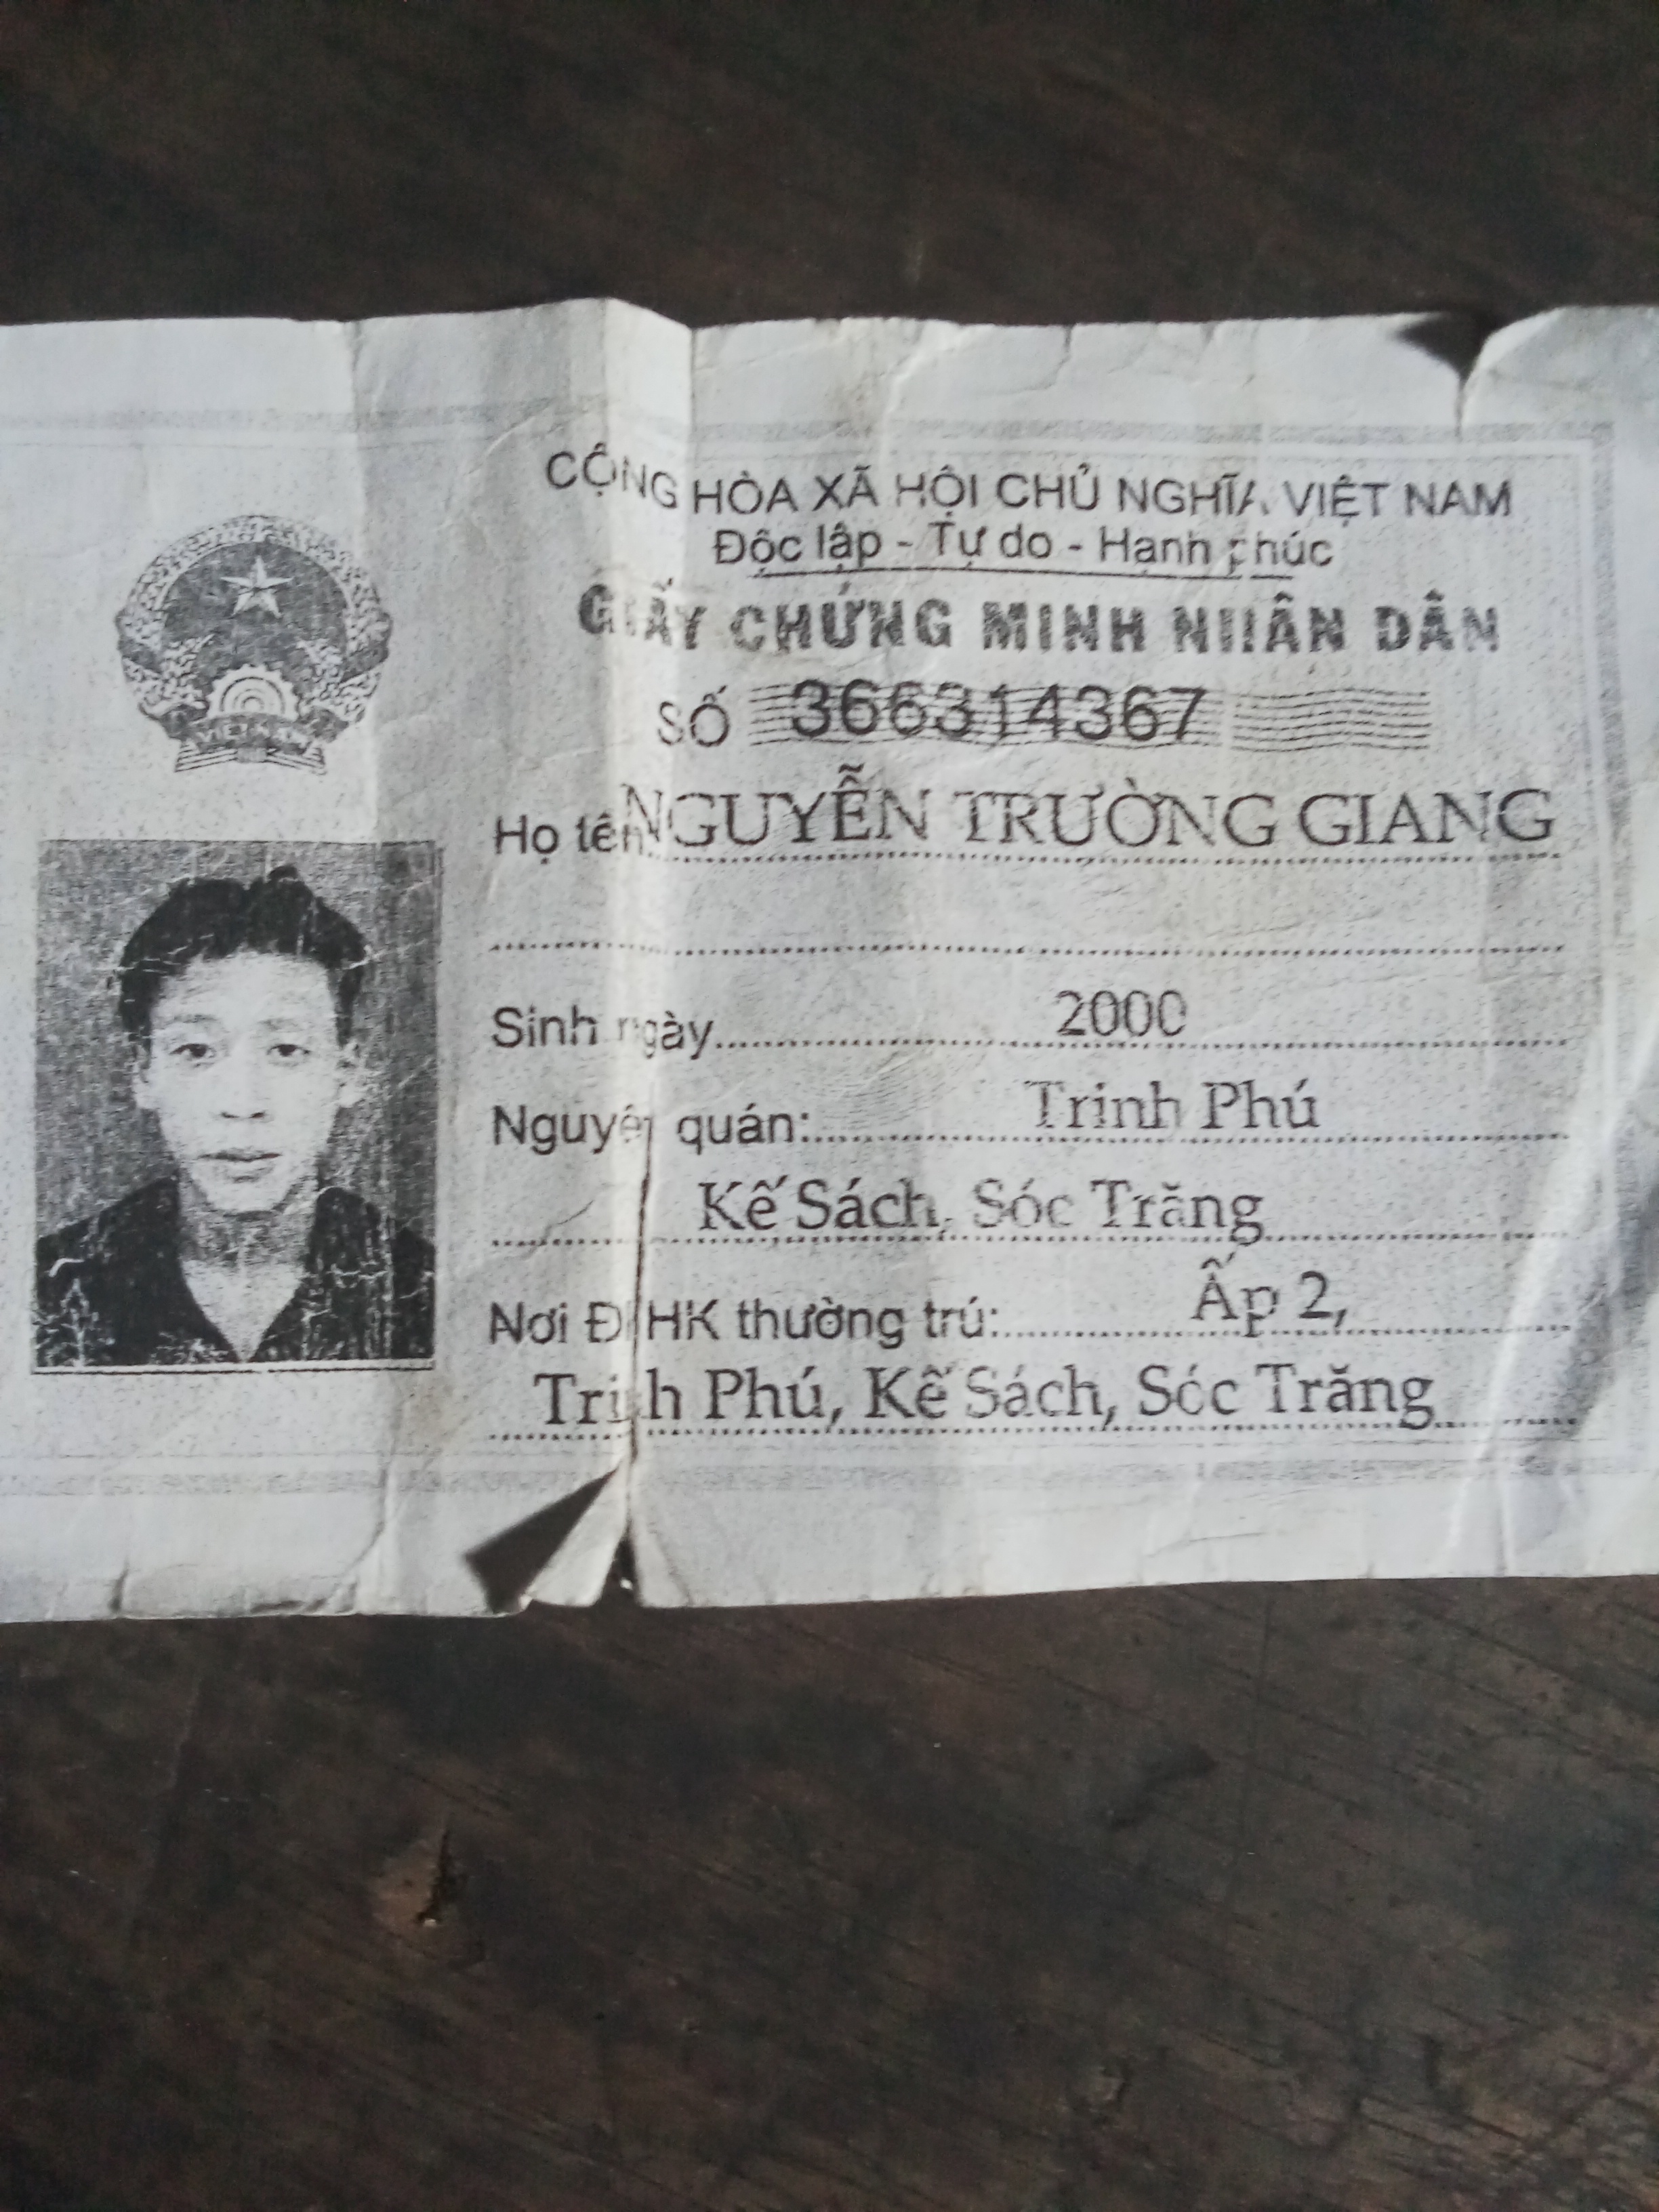 CỘNG HÒA XÃ HỘI CHỦ NGHĨA VIỆT NAM
Độc lập - Tự do - Hạnh phúc
GIẤY CHỨNG MINH NHÂN DÂN
SỐ 366314367
Họ tên NGUYỄN TRƯỜNG GIANG
Sinh ngày 2000
Nguyên quán: Trinh Phú
Kế Sách, Sóc Trăng
Nơi ĐKHK thường trú: Ấp 2,
Trinh Phú, Kế Sách, Sóc Trăng
VIỆT NAM